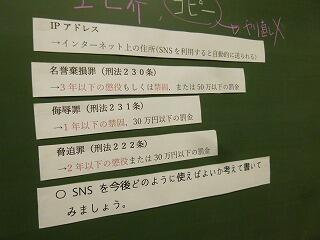 コピー
やり直し✗
IPアドレス
→インターネット上の住所(SNSを利用すると自動的に送られる)
名誉棄損罪(刑法230条)
→3年以下の懲役もしくは禁固、または50万以下の罰金
侮辱罪(刑法231条)
→1年以下の禁固、30万円以下の罰金
脅迫罪(刑法222条)
→2年以下の懲役または30万円以下の罰金
〇 SNSを今後どのように使えばよいか考えて書いて
みましょう。